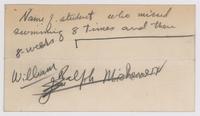 Name of student who missed
swimming 8 times and then
8 weeks
William
Ralph